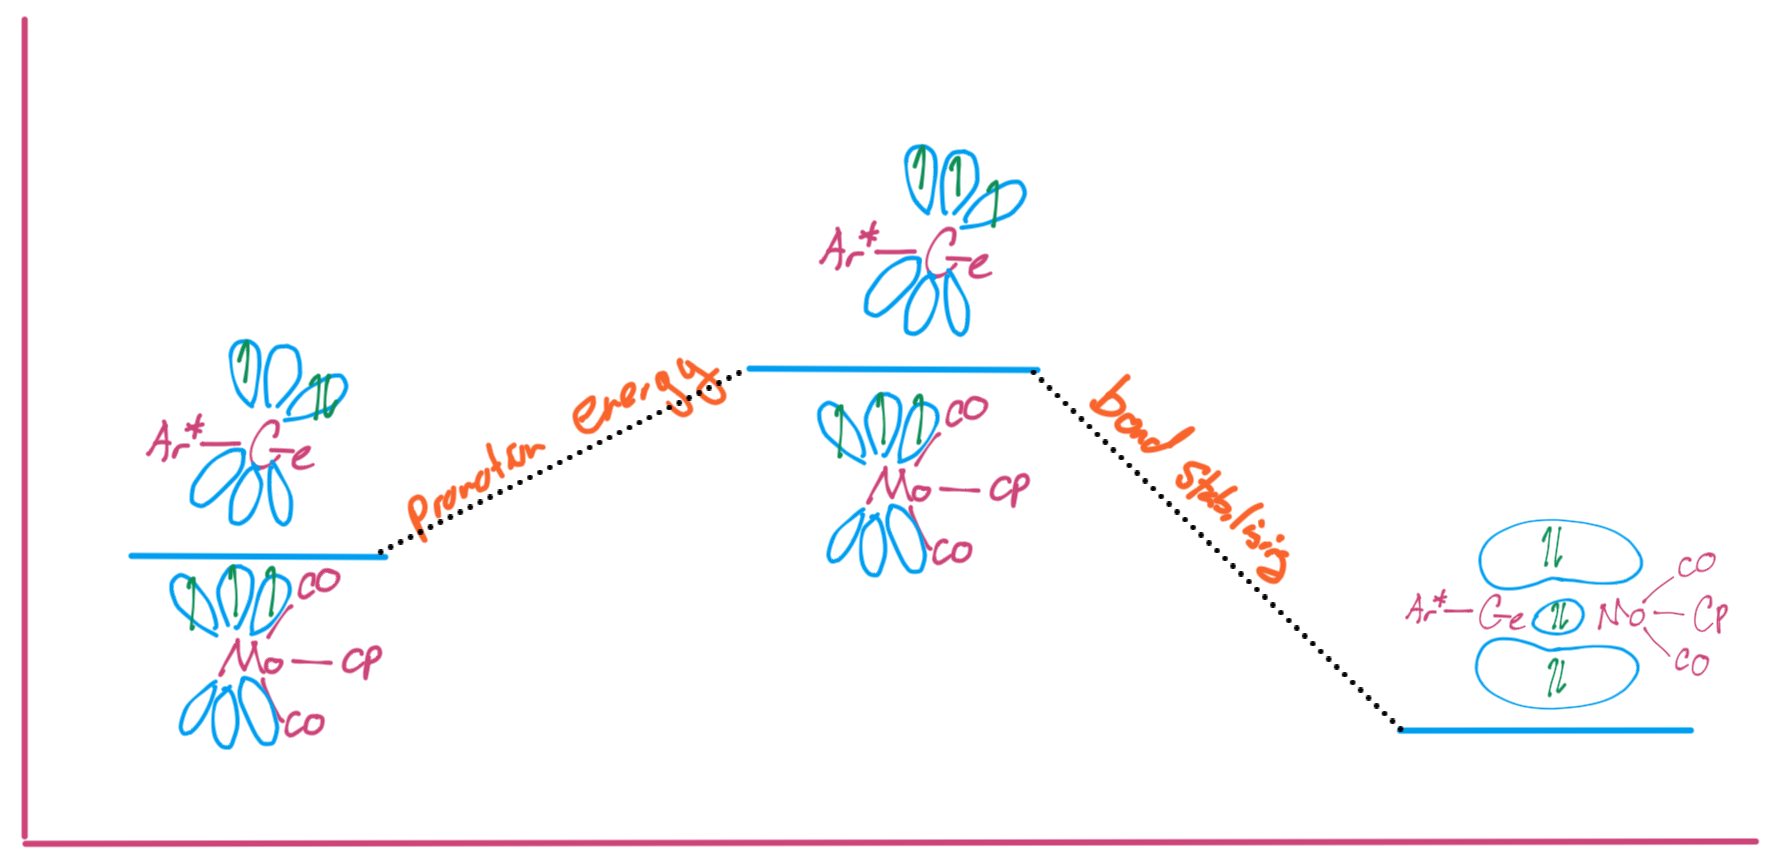 Ar*—Ge
CO
Mo—CP
CO
promotion energy
Ar*—Ge
CO
Mo—CP
CO
bond stabilising
CO
Ar*—Ge Mo—Cp
CO